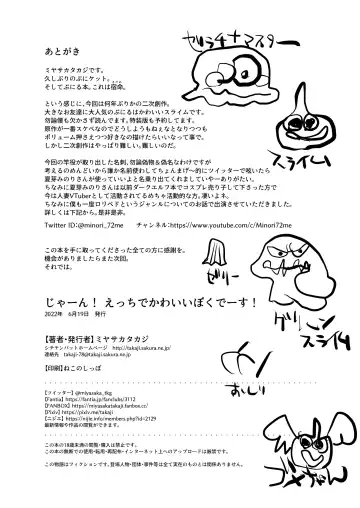 あとがき
ミヤサカタカジです。
久しぶりのぷにケット。
そしてぷにる本。これは宿命。
という感じに、今回は何年ぶりかの二次創作。
大きなお友達に大人気のぷにるはかわいいスライムです。
勿論僕も欠かさず読んでます。特装版も予約してます。
原作が一番スケベなのでどうしようもねぇなとなりつつも
ボリューム押さえつつ好きなの描けたらいいなって事で。
しかし二次創作はやっぱり難しい。難しいのだ。
今回の竿役が取り出した名刺、勿論偽物&偽名なわけですが
考えるのめんどいから誰か名前使わしてちょんまげ〜的にツイッターで呟いたら
夏芽みのりさんが使っていいよと名乗り出てくれましていやーありがたい。
ちなみに夏芽みのりさんは以前ダークエルフ本でコスプレ売り子して下さった方で
今は人妻VTuberとして活動されてるめちゃ活動的な方。凄いよネ。
ちなみに僕も一度ロリペドというジャンルについてのお話で出演させていただきました。
詳しくは下記から。是非是非。
Twitter ID:@minori_72me チャンネル:https://www.youtube.com/c/Minori72me
この本を手に取ってくださった全ての方に感謝を。
機会がありましたらまた次回。
それでは。
じゃーん! えっちでかわいいぼくでーす!
2022年 6月19日 発行
【著者・発行者】ミヤサカタカジ
シチテンバットホームページ http://takaji.sakura.ne.jp/
連絡先 takaji-78@takaji.sakura.ne.jp
【印刷】ねこのしっぽ
【ツイッター】@miyasaka_tkg
【Fantia】https://fantia.jp/fanclubs/3112
【FANBOX】https://miyasakatakaji.fanbox.cc/
【Pixiv】https://pixiv.me/takaji
【ニジエ】https://nijie.info/members.php?id=2129
最新情報や作品の閲覧ができます。
この本の18歳未満の閲覧・購入は禁止です。
この本の無断での使用・転用・再配布・インターネット上へのアップロードは厳禁です。
この物語はフィクションです。登場人物・団体・事件等は全て実在のものとは関係ありません。
ゼラチナマスター
スライム
ゼリー
グリーンスライム
おしり